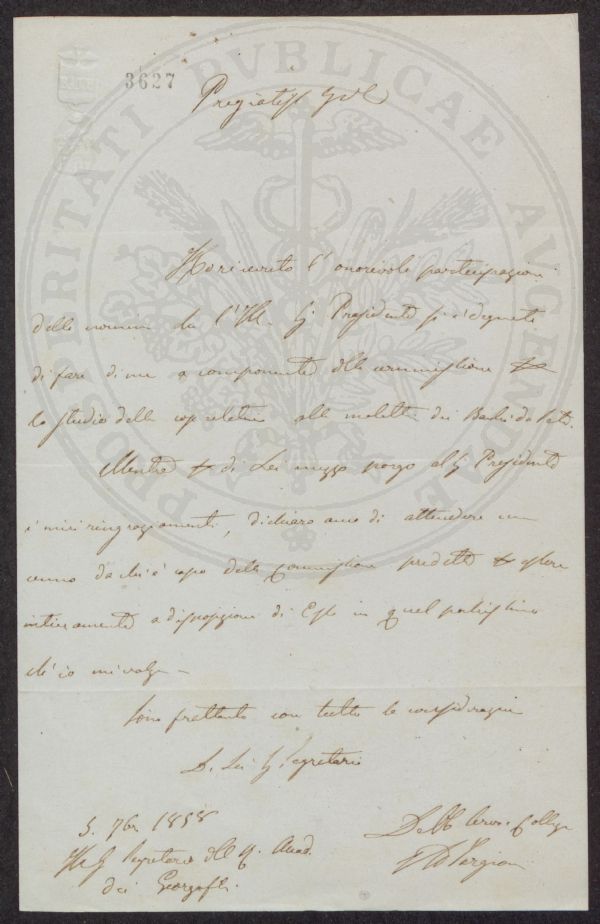 3627
PROSPERITATI PVBLICAE AVGENDAE
Pregiatiss
Ho ricevuto l' onorevole partecipazione
della nomina che l'Ill. Sig Presidente si è degnato
di fare di me a componente della commissione per
lo studio delle cose relative alla malattia dei Bachi da Seta.
Mentre per di Lei mezzo porgo al Sig Presidente
i miei ringraziamenti, dichiaro anco di attendere un
cenno da chi è capo della Commissione predetta per essere
intieramente a disposizione di Esso in quel pochissimo
ch'io mi valgo
Sono frattanto con tutta la considerazione
D. Lei Sig Segretario
5. 7bre 1858
Ill Sig Segretario dell' Accad.
dei Georgofili
Collega